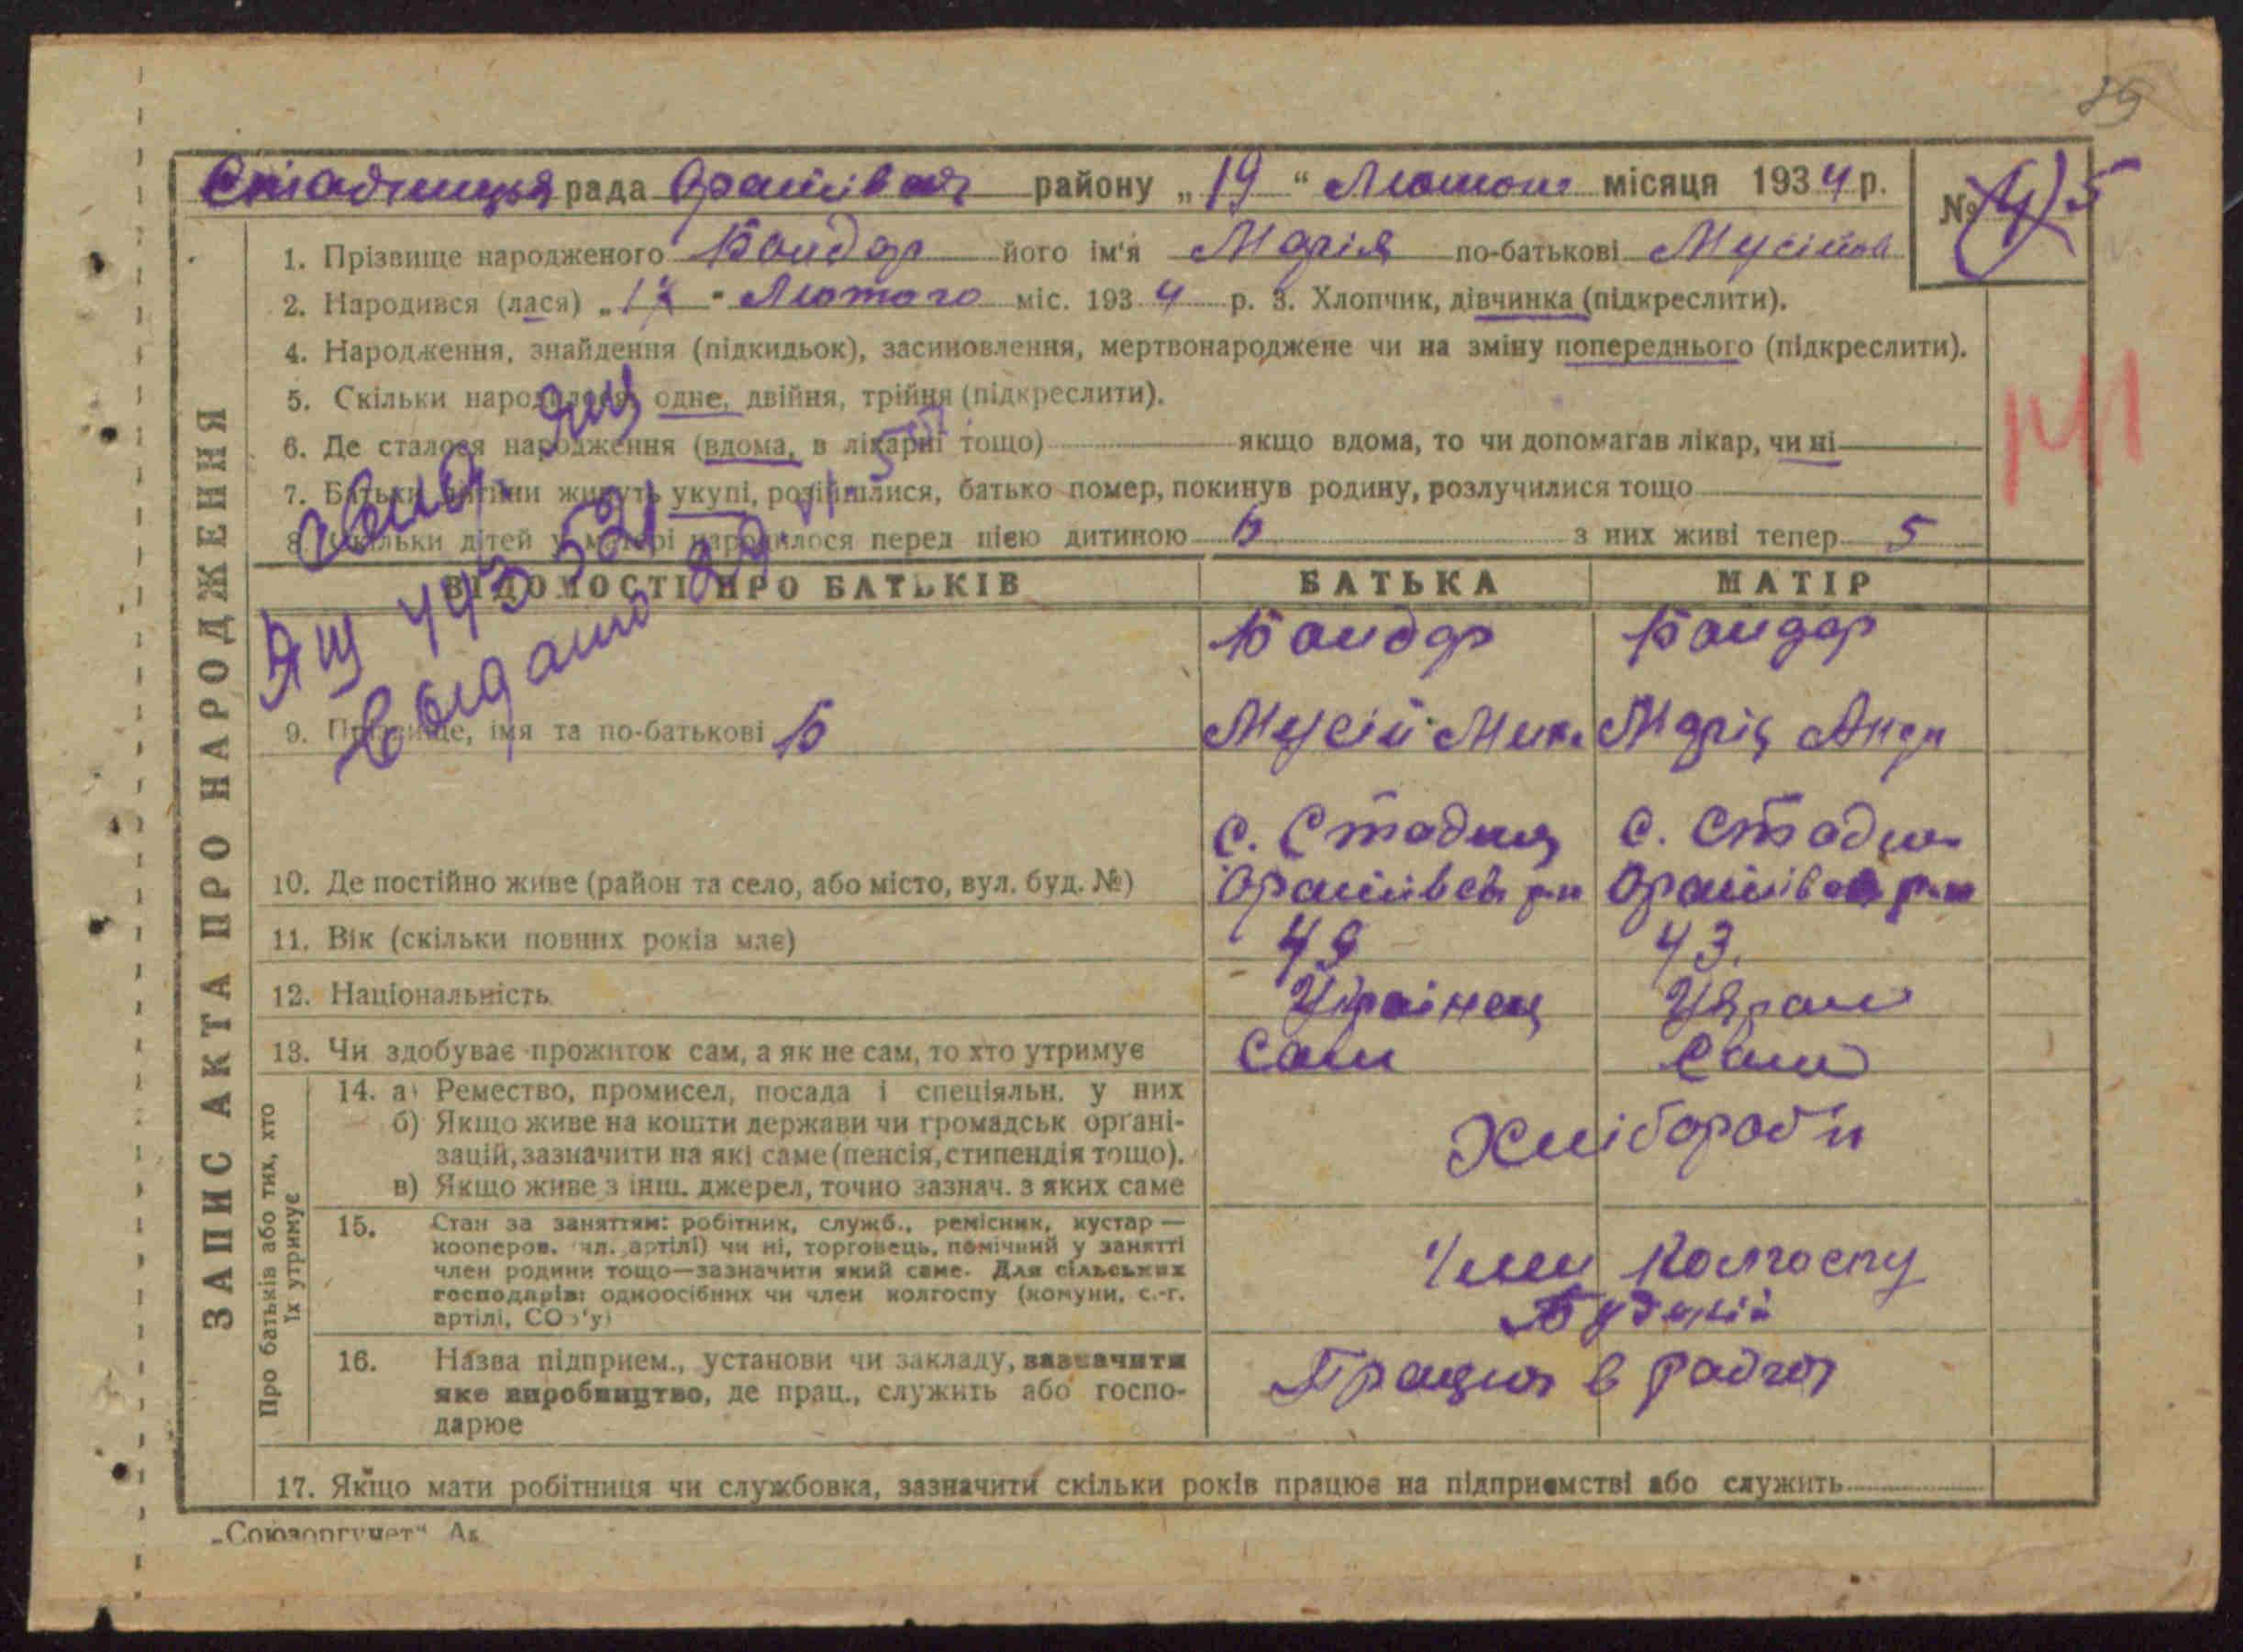 89
Стадницья рада Оратівськ району „19“ Лютого місяця 1934 р. № 5
1. Прізвище народженого Бондар його ім'я Марія по-батькові Мусіївна
2. Народився (лася) „17“ Лютого міс. 1934 р. 3. Хлопчик, дівчинка (підкреслити).
4. Народження, знайдення (підкидьок), засиновлення, мертвонароджене чи на зміну попереднього (підкреслити).
5. Скільки народилося одне, двійня, трійня (підкреслити).
6. Де сталося народження (вдома, в лікарні тощо) якщо вдома, то чи допомагав лікар, чи ні
7. Батьки дитини живуть укупі, розійшлися, батько помер, покинув родину, розлучилися тощо
8. Скільки дітей у матері народилося перед цією дитиною з них живі тепер 5
ВІДОМОСТІ ПРО БАТЬКІВ БАТЬКА МАТІР
ЯЩ 443521
Видано
Бондар Бондар
9. Прізвище, імя та по-батькові Мусій Мик. Марія Андр
с. Стадниця с. Стадн
10. Де постійно живе (район та село, або місто, вул. буд. №) Оратівськ р-н Оратівськ р-н
11. Вік (скільки повних років має) 49 43.
12. Національність Українец Украї
13. Чи здобуває прожиток сам, а як не сам, то хто утримує Сам Сам
14. а) Ремество, промисел, посада і спеціяльн. у них
б) Якщо живе на кошти держави чи громадськ органі-
зацій, зазначити на які саме (пенсія, стипендія тощо).
в) Якщо живе з інш. джерел, точно зазнач. з яких саме
Хлібороби
15. Стан за заняттям: робітник, служб., ремісник, кустар —
кооперов. чл. артілі) чи ні, торговець, помічний у занятті
член родини тощо—зазначити який саме. Для сільських
господарів: одноосібних чи член колгоспу (комуни, с.-г.
артілі, СОЗ'у)
Член Колгоспу
16. Назва підприєм., установи чи закладу, зазначити
яке виробництво, де прац., служить або госпо-
дарює
в
17. Якщо мати робітниця чи службовка, зазначити скільки років працює на підприємстві або служить
ЗАПИС АКТА ПРО НАРОДЖЕННЯ
Про батьків або тих, хто
їх утримує
„Союзоргучет“